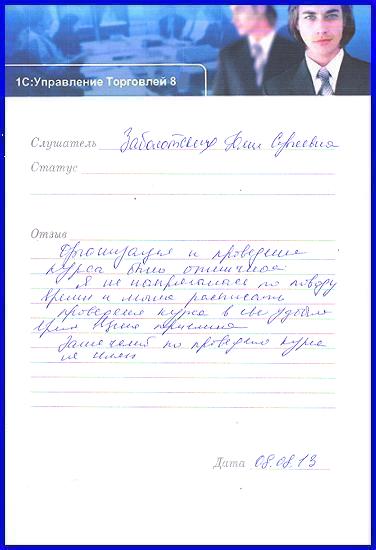 1С:Управление Торговлей 8
Слушатель Заболотских Юлия Сергеевна
Статус
Отзыв
Организация и проведение
курса было отличное
Я не напрягалась по поводу
времени и
проведения курса в удобное
время
Замечаний по проведению курса
не имею
Дата 08.08.13